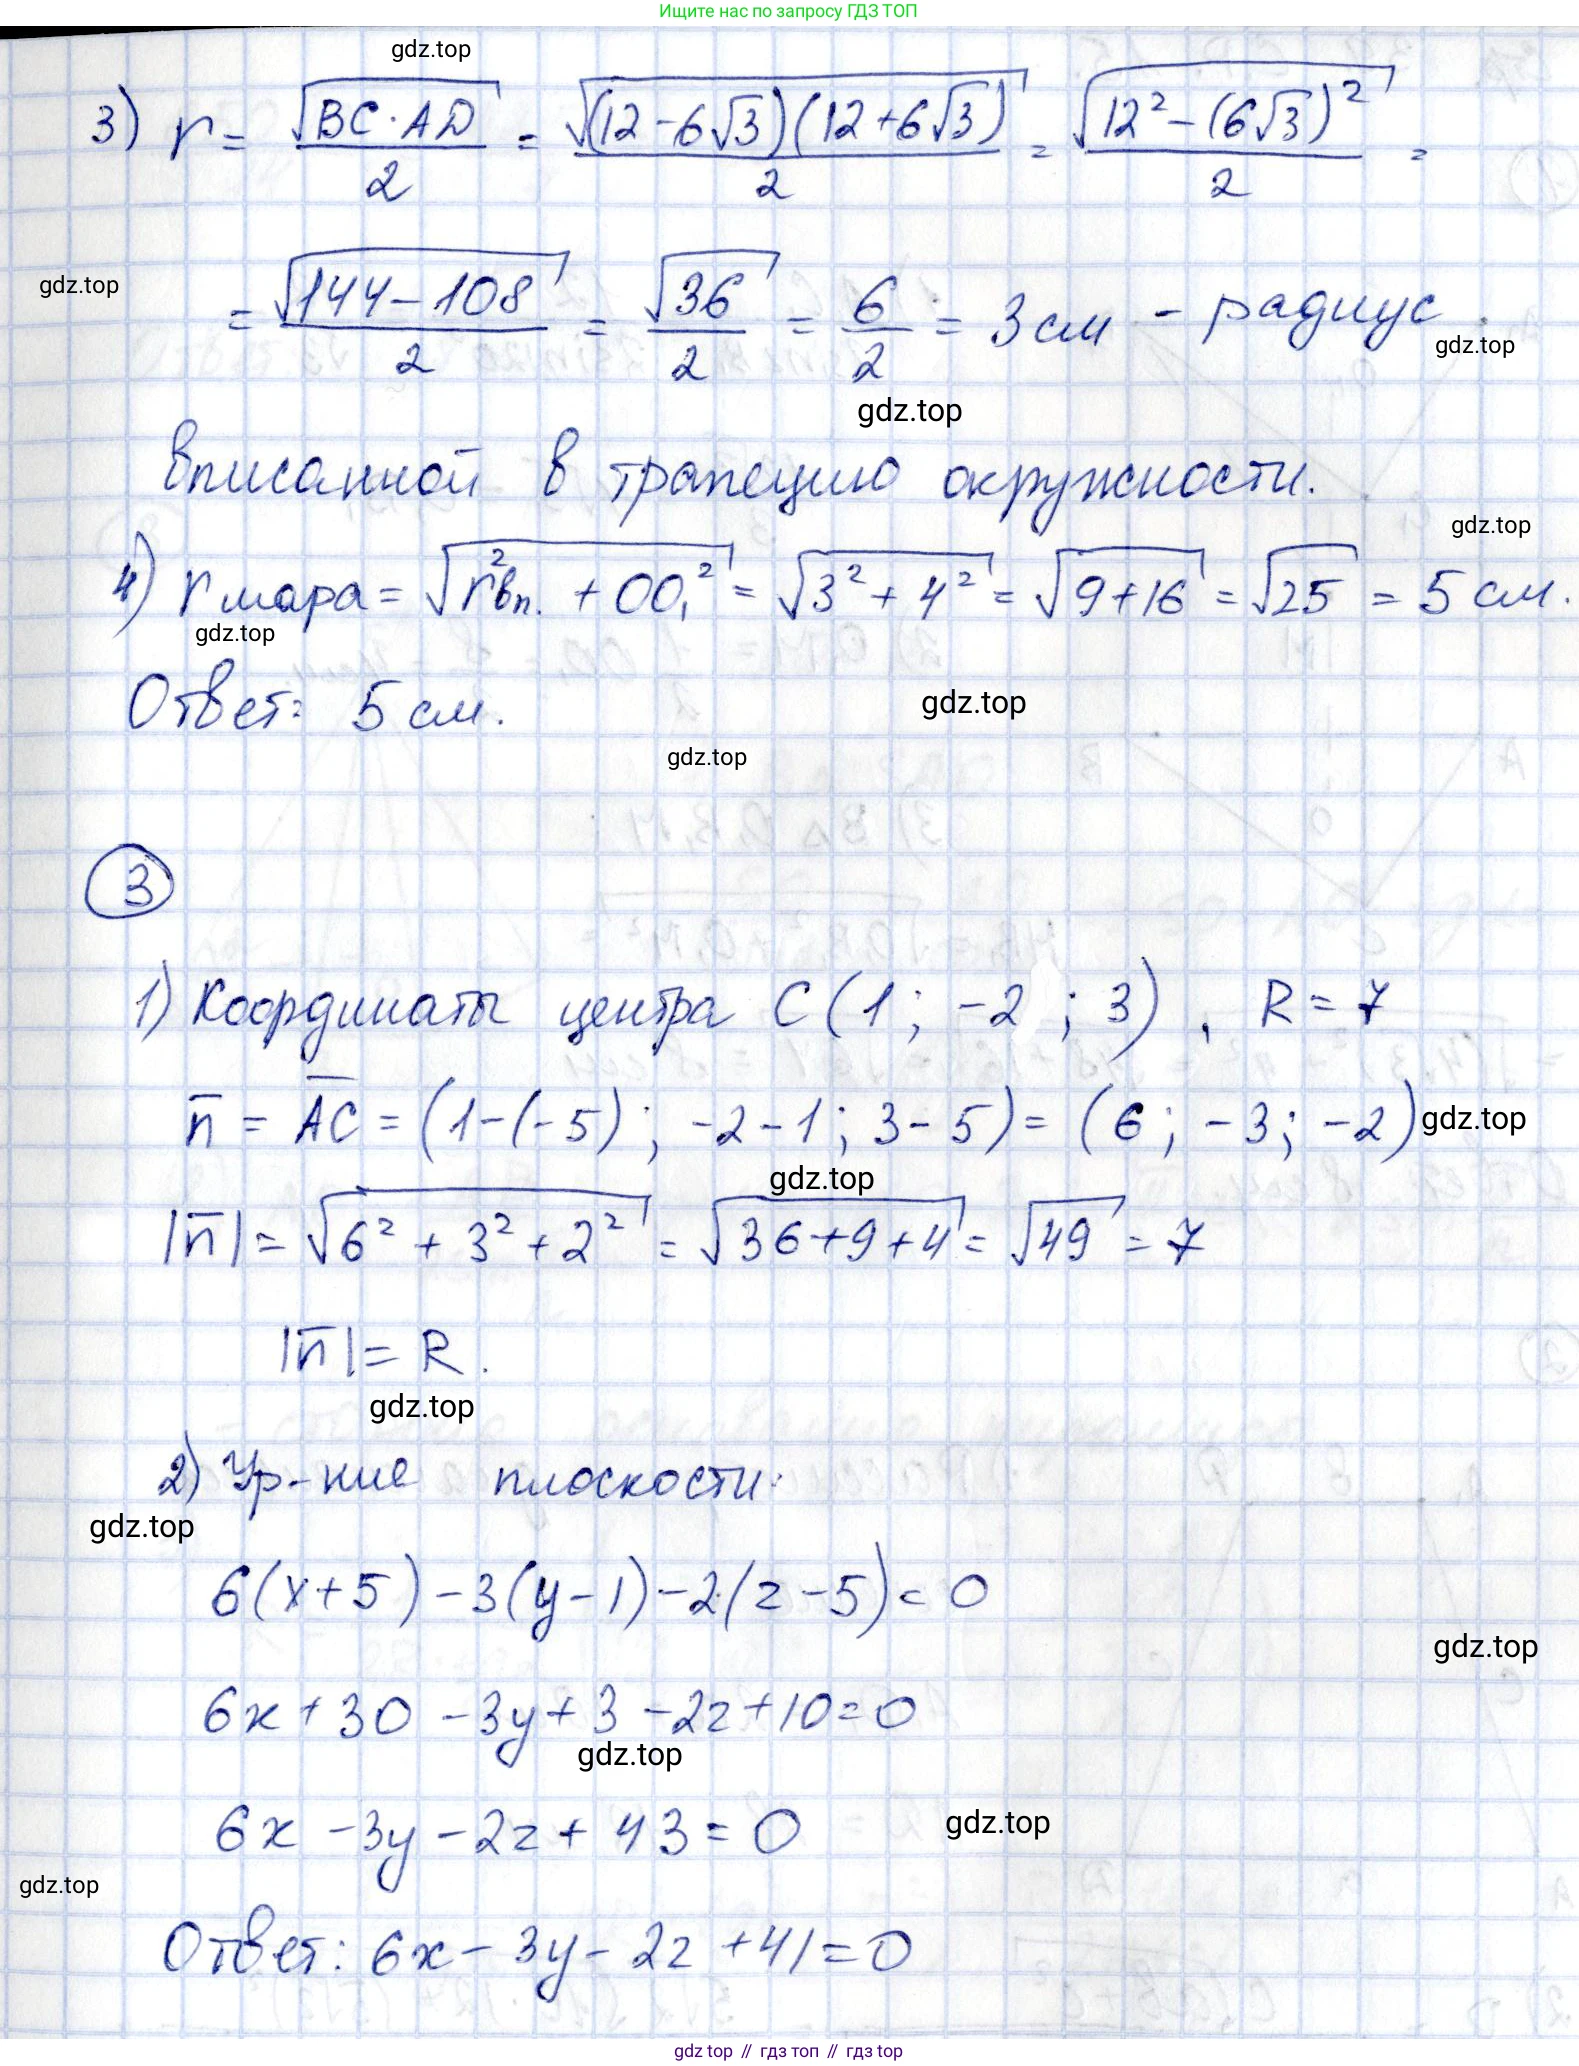 Ищите нас по запросу ГДЗ ТОП
gdz.top
3) r = √(BC·AD)/2 = √((12-6√3)(12+6√3))/2 = √(12²-(6√3)²)/2 =
gdz.top
= √(144-108)/2 = √36/2 = 6/2 = 3 см - радиус
gdz.top
gdz.top
вписанной в трапецию окружности.
gdz.top
4) r шара = √(r²вп. + OO₁²) = √(3²+4²) = √(9+16) = √25 = 5 см.
gdz.top
Ответ: 5 см.
gdz.top
gdz.top
3
1) Координаты центра C(1; -2; 3), R = 7
n̅ = A̅C̅ = (1-(-5); -2-1; 3-5) = (6; -3; -2)
gdz.top
gdz.top
|n̅| = √(6²+3²+2²) = √(36+9+4) = √49 = 7
|n̅| = R.
gdz.top
2) Ур-ние плоскости:
gdz.top
6(x+5)-3(y-1)-2(z-5)=0
gdz.top
6x+30-3y+3-2z+10=0
gdz.top
6x-3y-2z+43=0
gdz.top
gdz.top
Ответ: 6x-3y-2z+41=0
gdz.top // гдз топ // гдз top